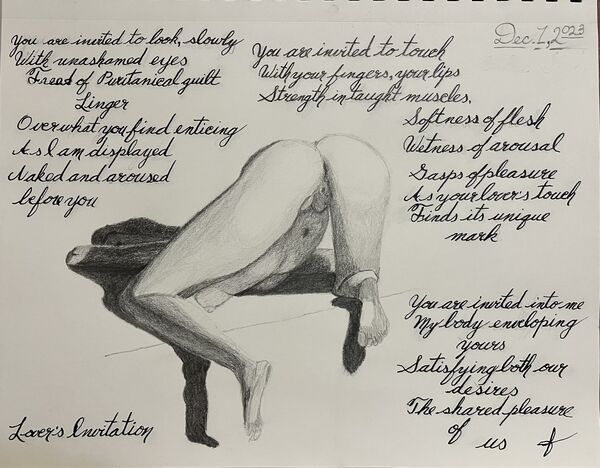 Dec. 1, 2023
You are invited to look, slowly
With unashamed eyes
Freed of Puritanical guilt
Linger
Over what you find enticing
As I am displayed
Naked and aroused
before you
You are invited to touch
With your fingers, your lips
Strength in taught muscles.
Softness of flesh
Wetness of arousal
Gasps of pleasure
As your lover's touch
Finds its unique
mark
You are invited into me
My body enveloping
yours
Satisfying both our
desires
The shared pleasure
of us
Lover's Invitation